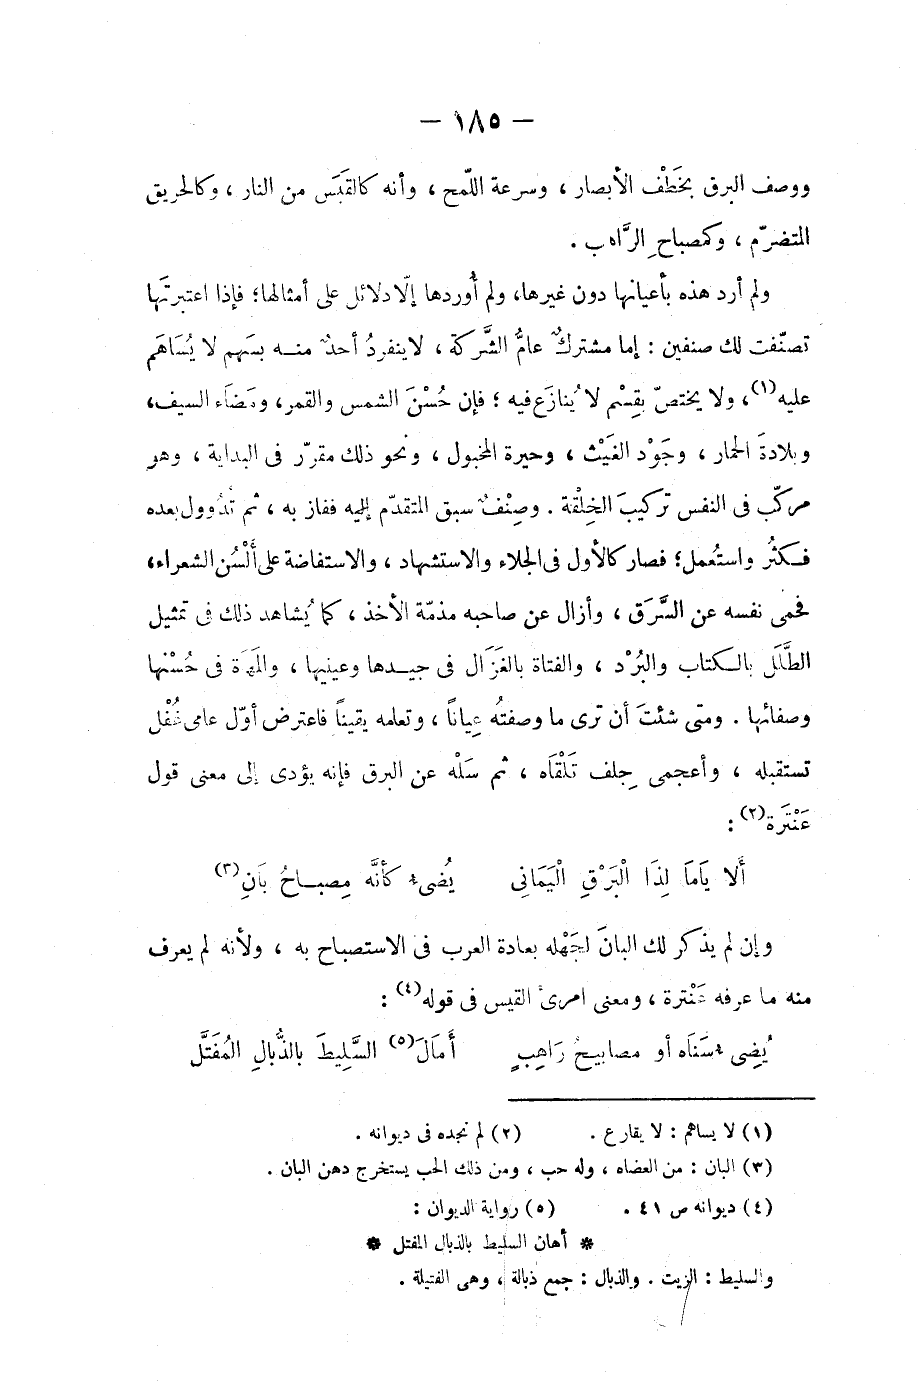 — ١٨٥ —
ووصف البرق بخَطْف الأبصار ، وسرعة اللّمح ، وأنه كالقَبَس من النار ، وكالحريق
المتضرّم ، وكمصباحِ الرَّاهب .
ولم أرد هذه بأعيانها دون غيرها، ولم أُوردها إلّا دلائل على أمثالها؛ فإذا اعتبرتَها
تصنّفت لك صنفين : إما مشتركٌ عامُّ الشَّركة ، لاينفردُ أحدٌ منـه بسَهم لا يُسَاهَم
عليه(١)، ولا يختصّ بقِسْم لا يُنازَع فيه ؛ فإن حُسْنَ الشمس والقمر، ومَضَاء السيف،
وبلادةَ الحمار ، وجَوْد الغَيْث ، وحيرة المخبول ، ونحو ذلك مقرّر فى البداية ، وهو
مركّب فى النفس تركيبَ الخِلْقة . وصِنْفٌ سبق المتقدّم إليه ففاز به ، ثم تُدُوول بعده
فـكثُر واستُعمل؛ فصار كالأول فى الجلاء والاستشهاد ، والاستفاضة على أَلْسُن الشعراء،
فحمى نفسه عن السَّرَق ، وأزال عن صاحبه مذمّة الأخذ ، كما يُشاهد ذلك فى تمثيل
الطَّلَل بالـكتاب والبُرْد ، والفتاة بالغَزَال فى جيـدها وعينيها ، والمَهَاة فى حُسْنها
وصفائها . ومتى شئتَ أن ترى ما وصفتُه عِياناً ، وتعلمه يقيناً فاعترض أوّل عامى غُفْل
تستقبله ، وأعجمى جِلف تَلْقَاه ، ثم سَلْه عن البرق فإنه يؤدى إلى معنى قول
عَنْتَرة(٢) :
أَلا يَامَا لِذَا الْبَرْقِ الْيَمَانِى يُضىء كأنَّه مِصبـاحُ بَانِ(٣)
وإن لم يذكر لك البانَ لجَهْله بعادة العرب فى الاستصباح به ، ولأنه لم يعرف
منه ما عرفه عَنْترة ، ومعنى امرئ القيس فى قوله(٤) :
يُضِىء سَنَاه أو مصابيحُ رَاهِبٍ أَمَالَ(٥) السَّلِيطَ بالذُّبالِ المُفَتَّل
(١) لا يساهم : لا يقارع . (٢) لم نجده فى ديوانه .
(٣) البان : من العضاه ، وله حب ، ومن ذلك الحب يستخرج دهن البان .
(٤) ديوانه ص ٤١ . (٥) رواية الديوان :
* أهان السليط بالذبال المفتل *
والسليط : الزيت . والذبال : جمع ذبالة ، وهى الفتيلة .